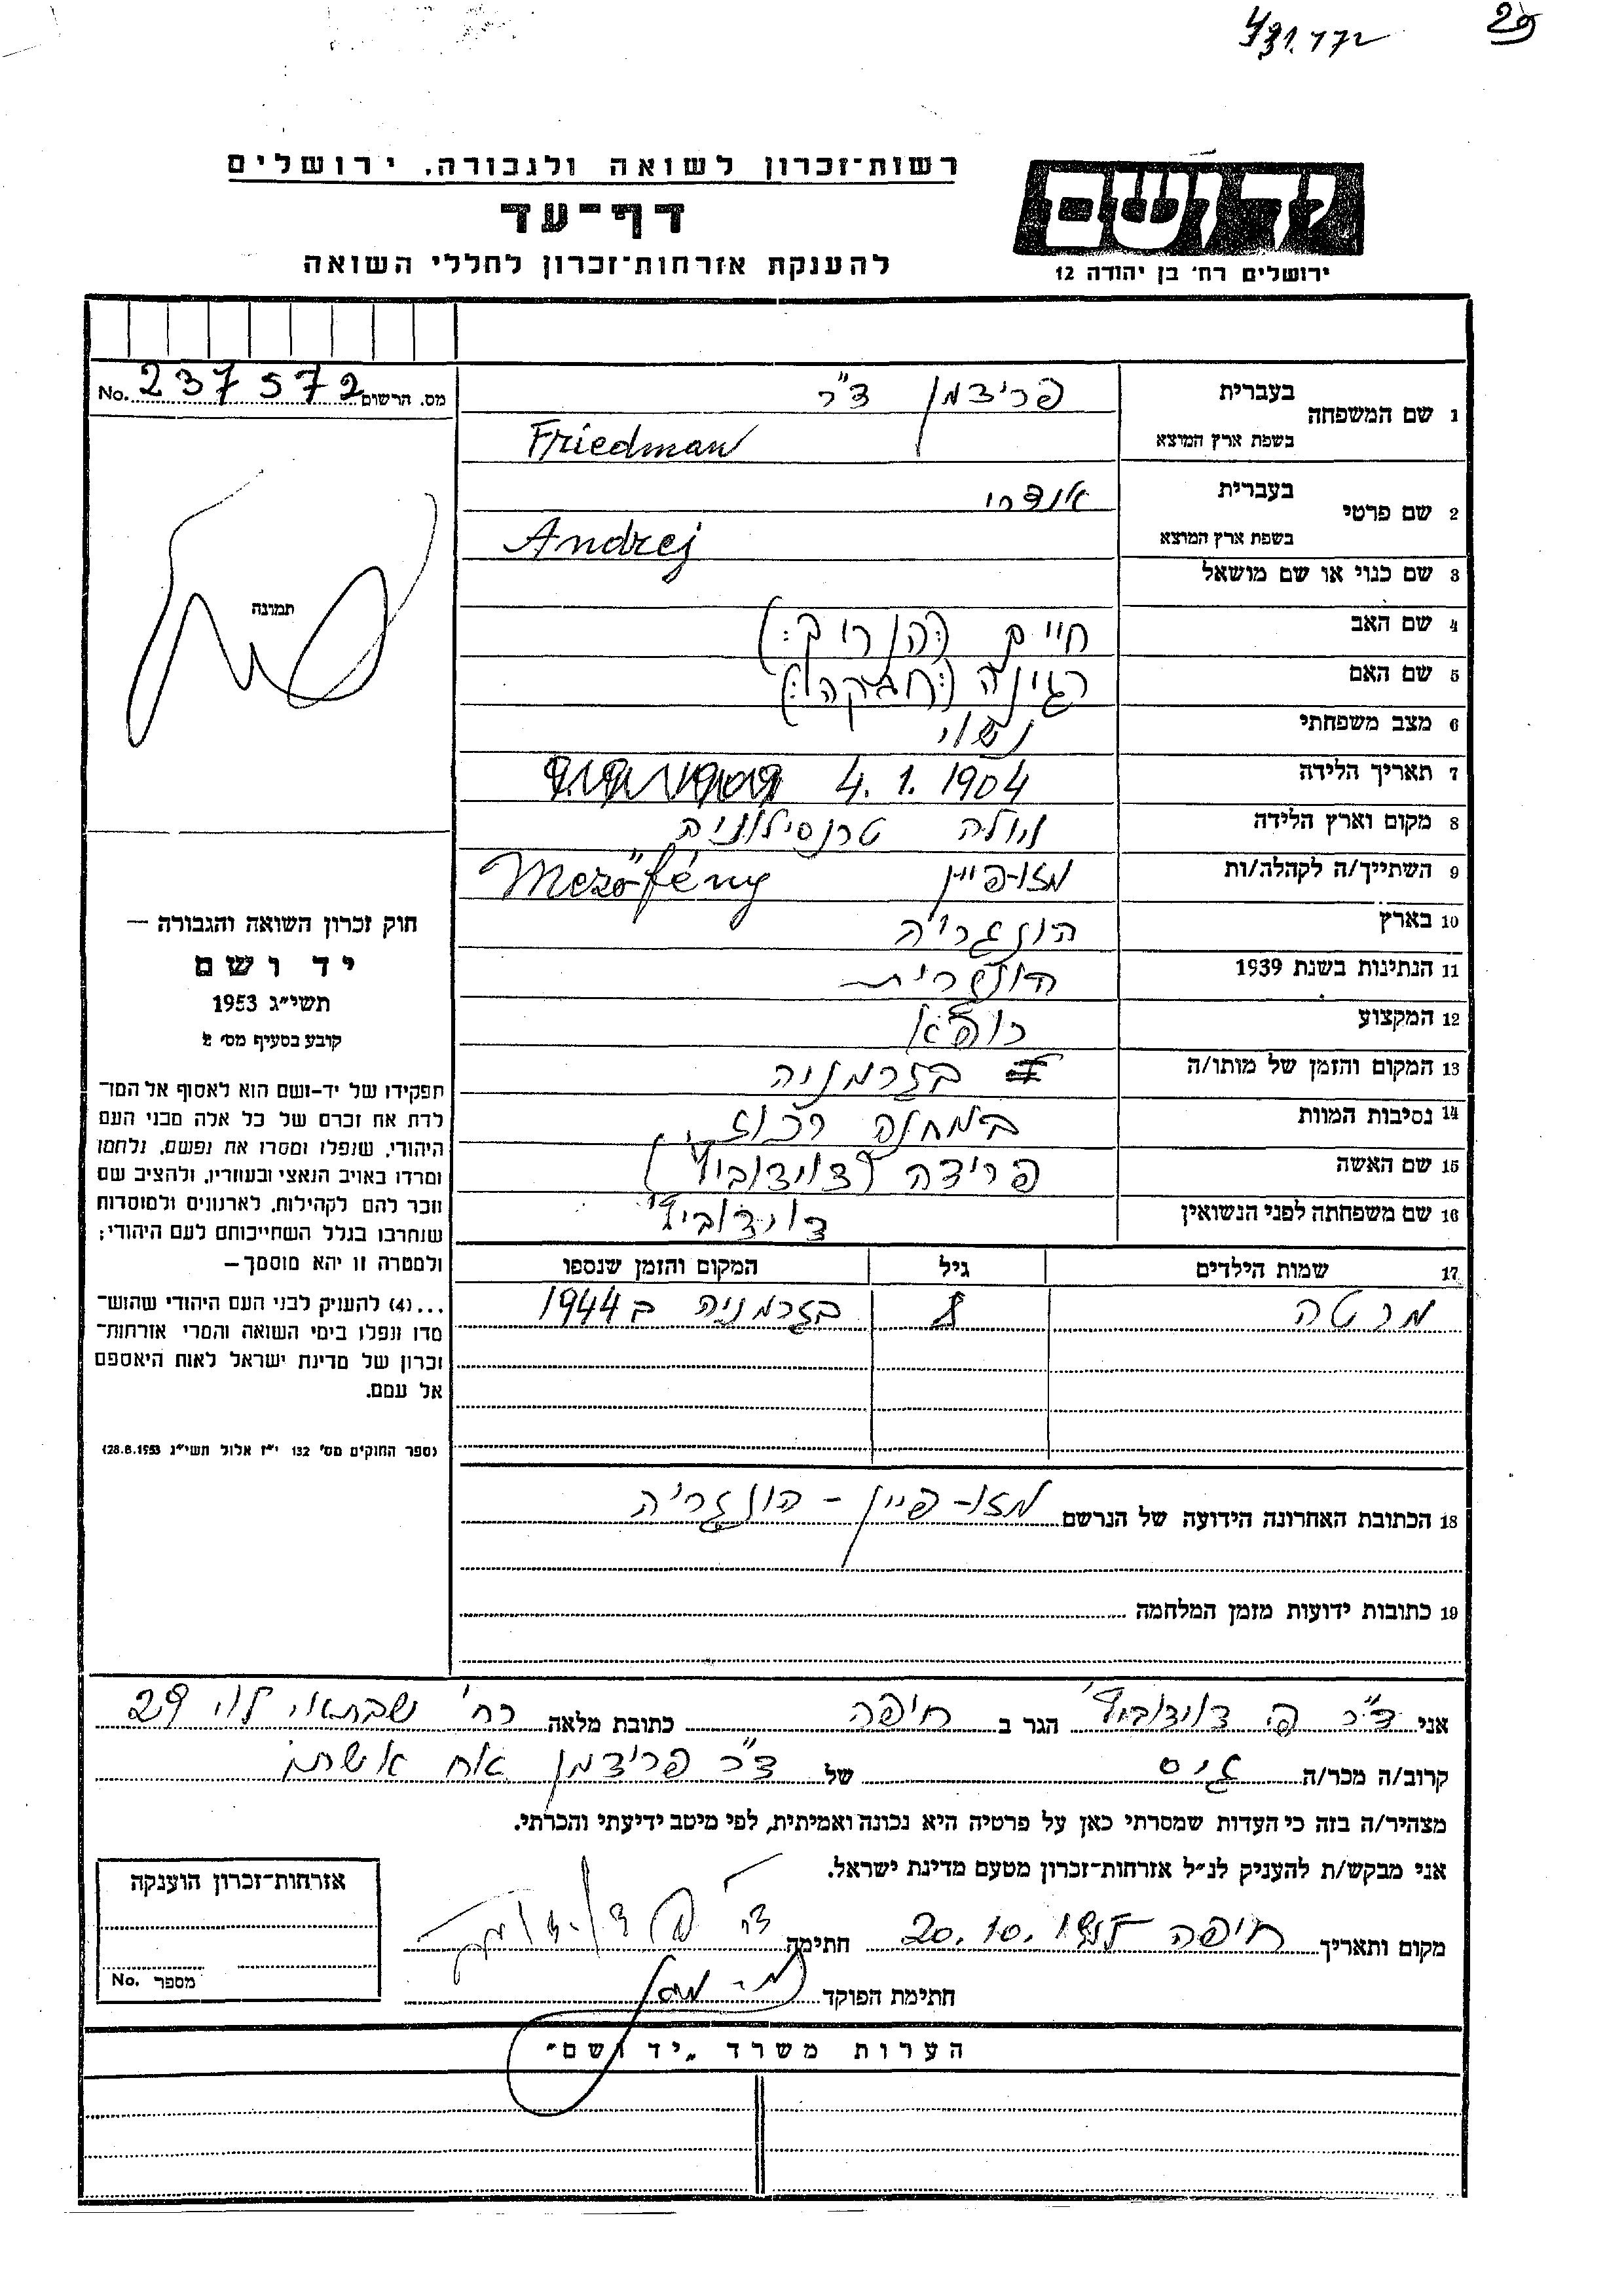 29
רשות־זכרון לשואה ולגבורה, ירושלים
דף־עד
להענקת אזרחות־זכרון לחללי השואה
יד ושם
ירושלים רח׳ בן יהודה 12
מס. הרשום 237572 No.
1 שם המשפחה בעברית פרידמן ד״ר
בשפת ארץ המוצא Friedman
2 שם פרטי בעברית אנדרי
בשפת ארץ המוצא Andrej
3 שם כנוי או שם מושאל
4 שם האב חיים (:הנריק:)
5 שם האם רגינה
6 מצב משפחתי נשוי
7 תאריך הלידה 4.1.1904
8 מקום וארץ הלידה טרנסילוניה
9 השתייך/ה לקהלה/ות מזו־פיין Mezőfény
10 בארץ הונגריה
11 הנתינות בשנת 1939 הונגרית
12 המקצוע רופא
13 המקום והזמן של מותו/ה בגרמניה
14 נסיבות המוות במחנה רכוז
15 שם האשה פרידה (דוידוביץ׳)
16 שם משפחתה לפני הנשואין דוידוביץ׳
17 שמות הילדים גיל המקום והזמן שנספו
מרטה 8 בגרמניה ב 1944
18 הכתובת האחרונה הידועה של הנרשם מזו־פיין - הונגריה
19 כתובות ידועות מזמן המלחמה
תמונה
חוק זכרון השואה והגבורה —
יד ושם
תשי״ג 1953
קובע בסעיף מס׳ 2
תפקידו של יד־ושם הוא לאסוף אל המו־
לדת את זכרם של כל אלה מבני העם
היהודי, שנפלו ומסרו את נפשם, נלחמו
ומרדו באויב הנאצי ובעוזריו, ולהציב שם
וזכר להם לקהילות, לארגונים ולמוסדות
שנחרבו בגלל השתייכותם לעם היהודי;
ולמטרה זו יהא מוסמך —
...(4) להעניק לבני העם היהודי שהוש־
מדו ונפלו בימי השואה והמרי אזרחות־
זכרון של מדינת ישראל לאות היאספם
אל עמם.
(ספר החוקים מס׳ 132 י״ז אלול תשי״ג 28.8.1953)
אני ד״ר פ. דוידוביץ׳ הגר ב חיפה כתובת מלאה רח׳ שבתאי לוי 29
קרוב/ה מכר/ה גיס של ד״ר פרידמן אח אשתו
מצהיר/ה בזה כי העדות שמסרתי כאן על פרטיה היא נכונה ואמיתית, לפי מיטב ידיעתי והכרתי.
אני מבקש/ת להעניק לנ״ל אזרחות־זכרון מטעם מדינת ישראל.
מקום ותאריך חיפה 20.10. חתימה
חתימת הפוקד
אזרחות־זכרון הוענקה
מספר No.
הערות משרד „יד ושם״